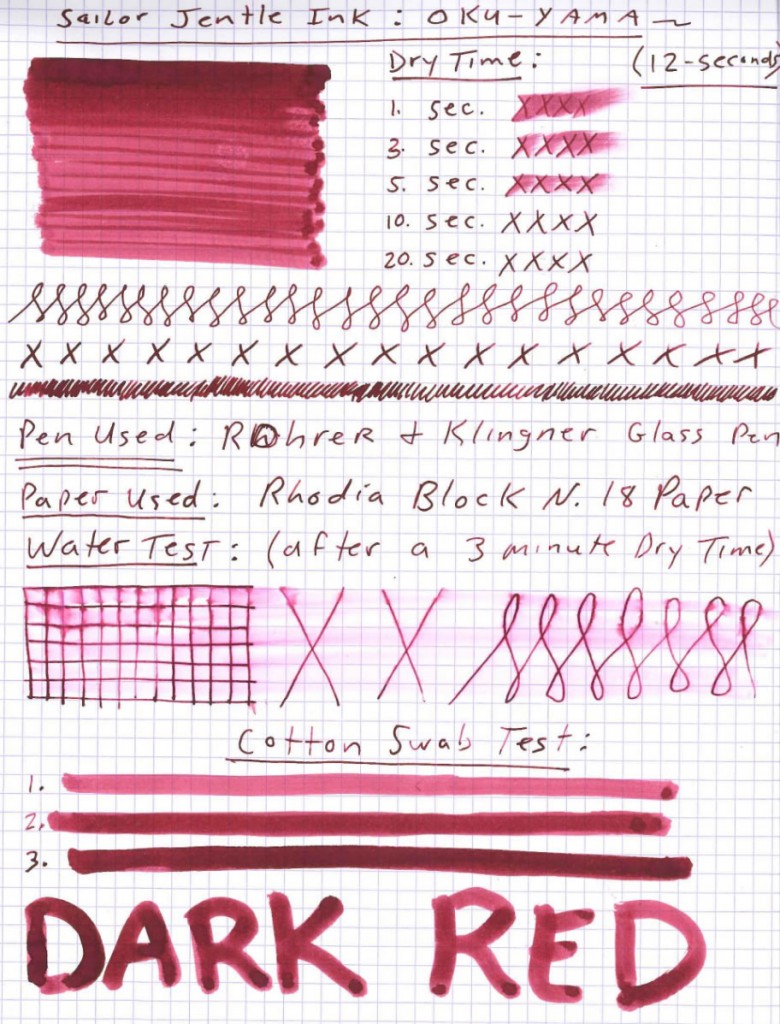 Sailor Jentle Ink: OKU-YAMA ~
Dry Time: (12-seconds)
1. sec. XXXX
3. sec. XXXX
5. sec. XXXX
10. sec. XXXX
20. sec. XXXX
X X X X X X X X X X X X X X X X X
Pen Used: Rohrer & Klingner Glass Pen
Paper Used: Rhodia Block N. 18 Paper
Water Test: (after a 3 minute Dry Time)
X X
Cotton Swab Test:
1.
2.
3.
DARK RED